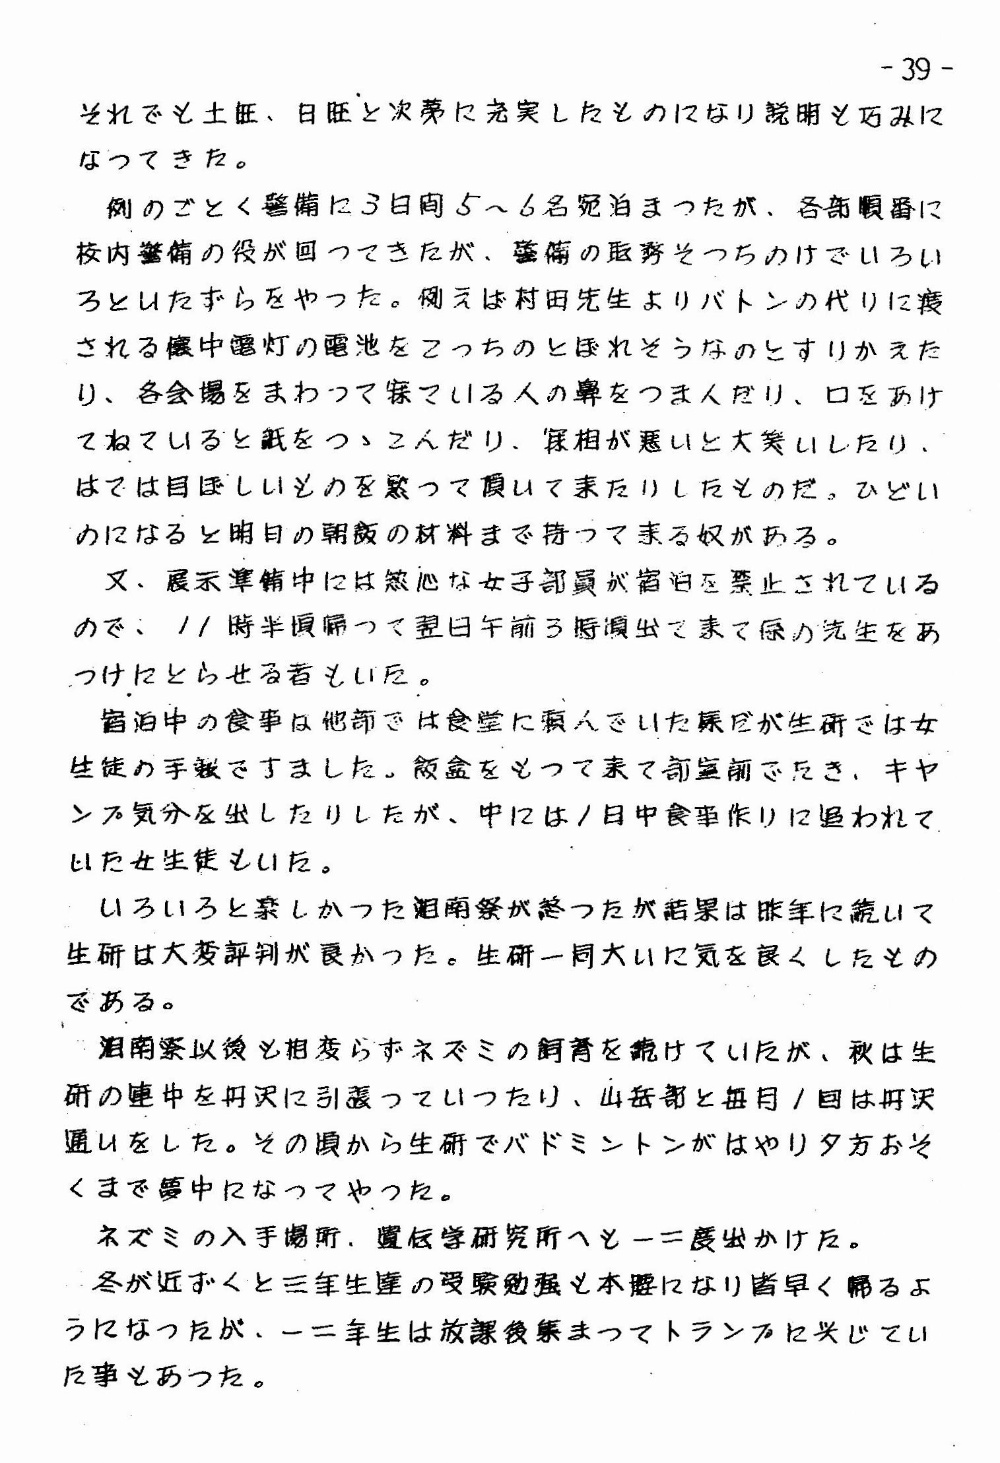 -39-
それでも土旺、日旺と次第に充実したものになり説明も巧みに
なつてきた。
例のごとく警備に3日間5～6名宛泊まつたが、各部順番に
校内警備の役が回つてきたが、警備の取務そつちのけでいろい
ろといたずらをやった。例えば村田先生よりバトンの代りに渡
される懐中電灯の電池をこっちのとぼれそうなのとすりかえた
り、各会場をまわつて寝ている人の鼻をつまんだり、口をあけ
てねていると紙をつゝこんだり、寝相が悪いと大笑いしたり、
はては目ぼしいものを黙つて頂いて来たりしたものだ。ひどい
のになると明日の朝飯の材料まで持つて来る奴がある。
又、展示準備中には熱心な女子部員が宿泊を禁止されている
ので、11時半頃帰つて翌日午前3時頃出て来て係の先生をあ
つけにとらせる者もいた。
宿泊中の食事は他部では食堂に頼んでいた様だが生研では女
生徒の手数ですました。飯盒をもつて来て部室前でたき、キヤ
ンプ気分を出したりしたが、中には1日中食事作りに追われて
いた女生徒もいた。
いろいろと楽しかつた湘南祭が終つたが結果は昨年に続いて
生研は大変評判が良かつた。生研一同大いに気を良くしたもの
である。
湘南祭以後も相変らずネズミの飼育を続けていたが、秋は生
研の連中を丹沢に引張っていつたり、山岳部と毎月1回は丹沢
通いをした。その頃から生研でバドミントンがはやり夕方おそ
くまで夢中になってやつた。
ネズミの入手場所、遺伝学研究所へも一二度出かけた。
冬が近ずくと三年生達の受験勉強も本腰になり皆早く帰るよ
うになつたが、一二年生は放課後集まつてトランプに興じてい
た事もあつた。